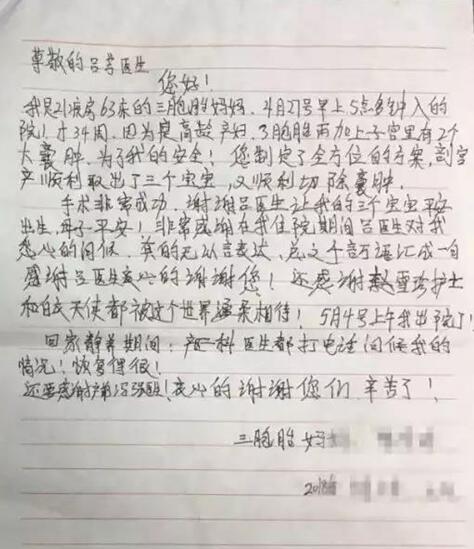 尊敬的吕芳医生
您好！
我是21病房63床的三胞胎妈妈，4月27号早上5点多钟入的
院！才34周，因为是高龄产妇，3胞胎再加上子宫里有2个
大囊肿，为了我的安全！您制定了全方位的方案，剖宫
产顺利取出了三个宝宝，又顺利切除囊肿。
手术非常成功，谢谢吕医生让我的三个宝宝平安
出生，母子平安！非常感谢在我住院期间吕医生对我
悉心的问候，真的无以言表达，总之千言万语汇成一句
感谢吕医生衷心的谢谢您！还感谢 护士
和白衣天使都被这个世界温柔相待！5月4号上午我出院了！
回家静养期间：产一科医生都打电话问候我的
情况！恢复得很！
还要感谢产 ！衷心的谢谢您们辛苦了！
三胞胎妈
2018